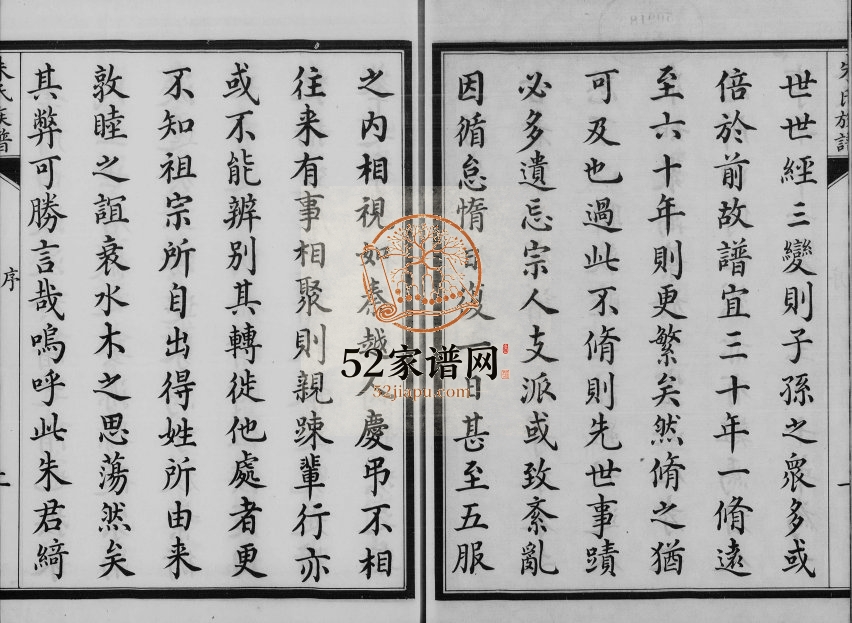 朱氏族譜
世世經三變則子孫之眾多或
倍於前故譜宜三十年一脩遠
至六十年則更繁矣然脩之猶
可及也過此不脩則先世事蹟
必多遺忘宗人支派或致紊亂
因循怠惰日復一日甚至五服
之內相視如秦越人慶弔不相
往来有事相聚則親踈輩行亦
或不能辨别其轉徙他處者更
不知祖宗所自出得姓所由来
敦睦之誼衰水木之思蕩然矣
其弊可勝言哉嗚呼此朱君綺
朱氏族譜
序
52家谱网
52jiapu.com